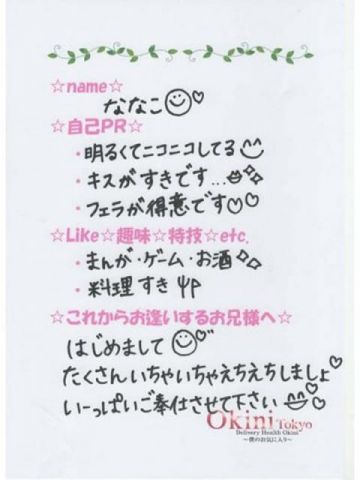 ☆name☆
ななこ
☆自己PR☆
・明るくてニコニコしてる
・キスがすきです…
・フェラが得意です♡♡
☆Like☆趣味☆特技☆etc.
・まんが・ゲーム・お酒
・料理すき
☆これからお逢いするお兄様へ☆
はじめまして
たくさんいちゃいちゃえちえちしましょ♡
いーっぱいご奉仕させて下さい
Okini Tokyo
Delivery Health Okini
～僕のお気に入り～